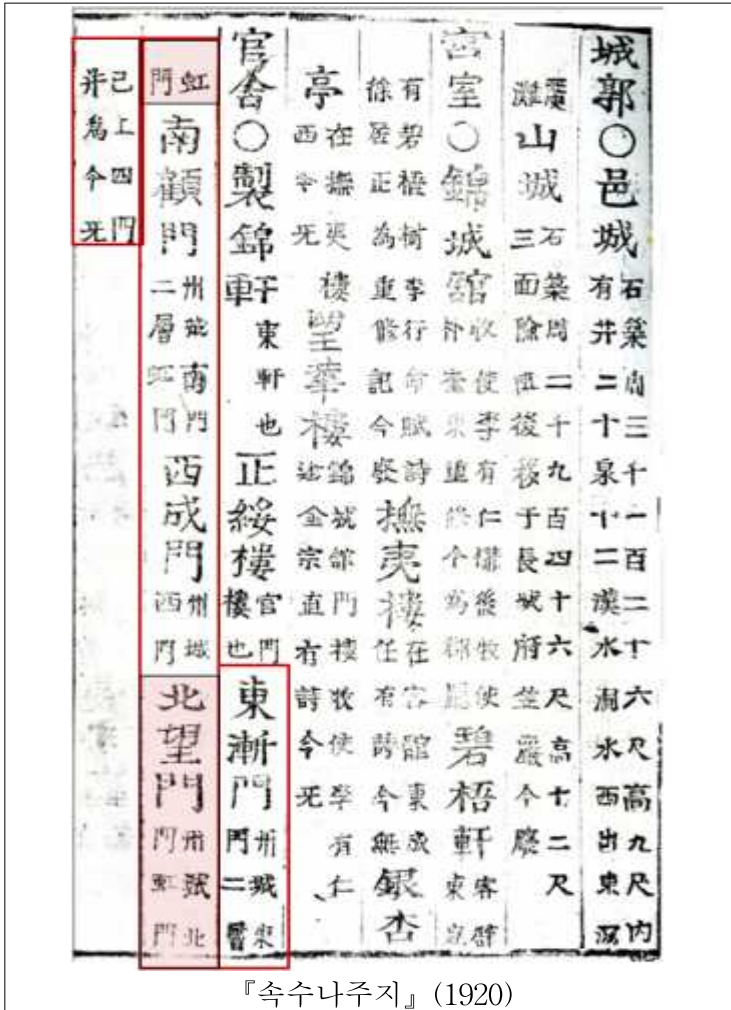 城郭○邑城 石築周三千一百二十六尺高九尺內 有井二十泉十二漢水澗水西出東
山城 石築周二十九百四十六尺高十二尺 三面險阻後移于長城府笠巖今廢
宮室○錦城館 收使李有仁構後牧使 重修今爲 碧梧軒
有碧梧樹李行命賦詩 徐居正為重修記今廢 撫夷樓 在客館東成 任有詩今無 銀杏
亭 在撫夷樓 西今无 望華樓 錦城館門樓牧使李有仁 金宗直有詩今无
官舍○製錦軒 于東軒也 正綏樓 官門 樓也 東漸門 州城東 門二層
虹門 南顧門 州城南門 二層虹門 西成門 州城 西門 北望門 州城北 門虹門
已上四門 并爲今无
『속수나주지』(1920)